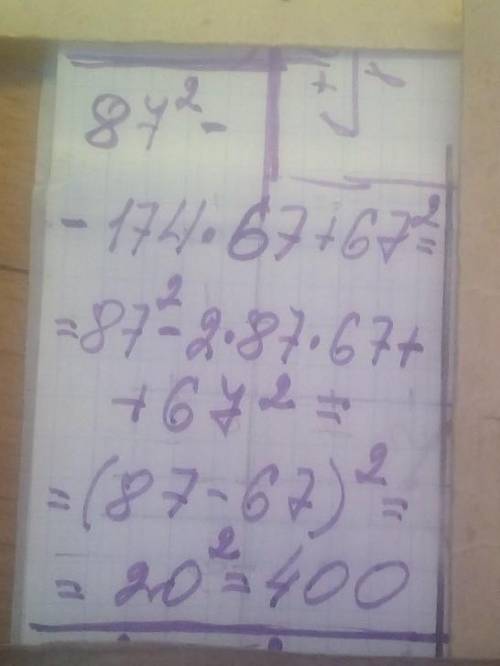 87² -
- 174 · 67 + 67² =
= 87² - 2 · 87 · 67 +
+ 67² =
= (87 - 67)² =
= 20² = 400